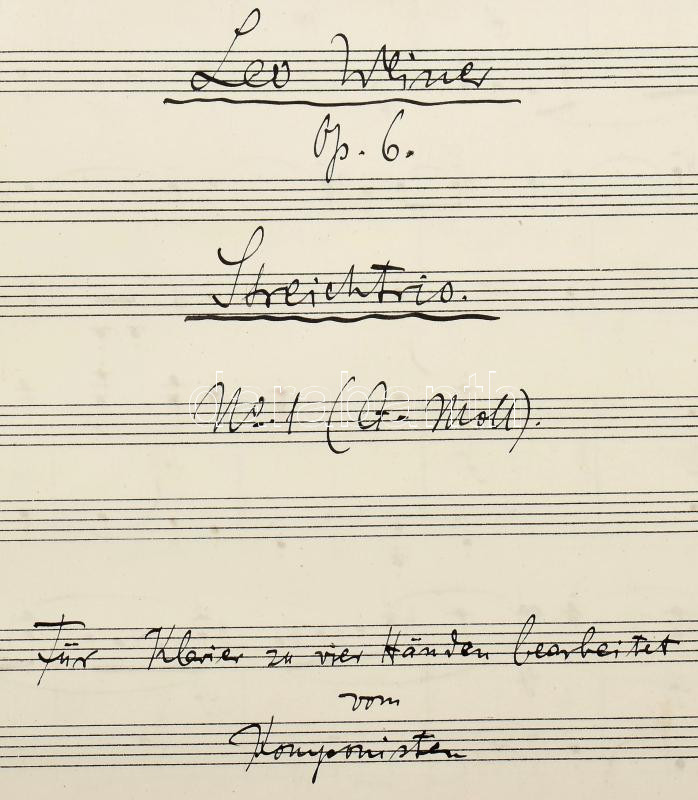 Leo Weiner
Op. 6.
Streichtrio.
No. 1 (G-Moll).
darabanth
Für Klavier zu vier Händen bearbeitet
vom
Komponisten